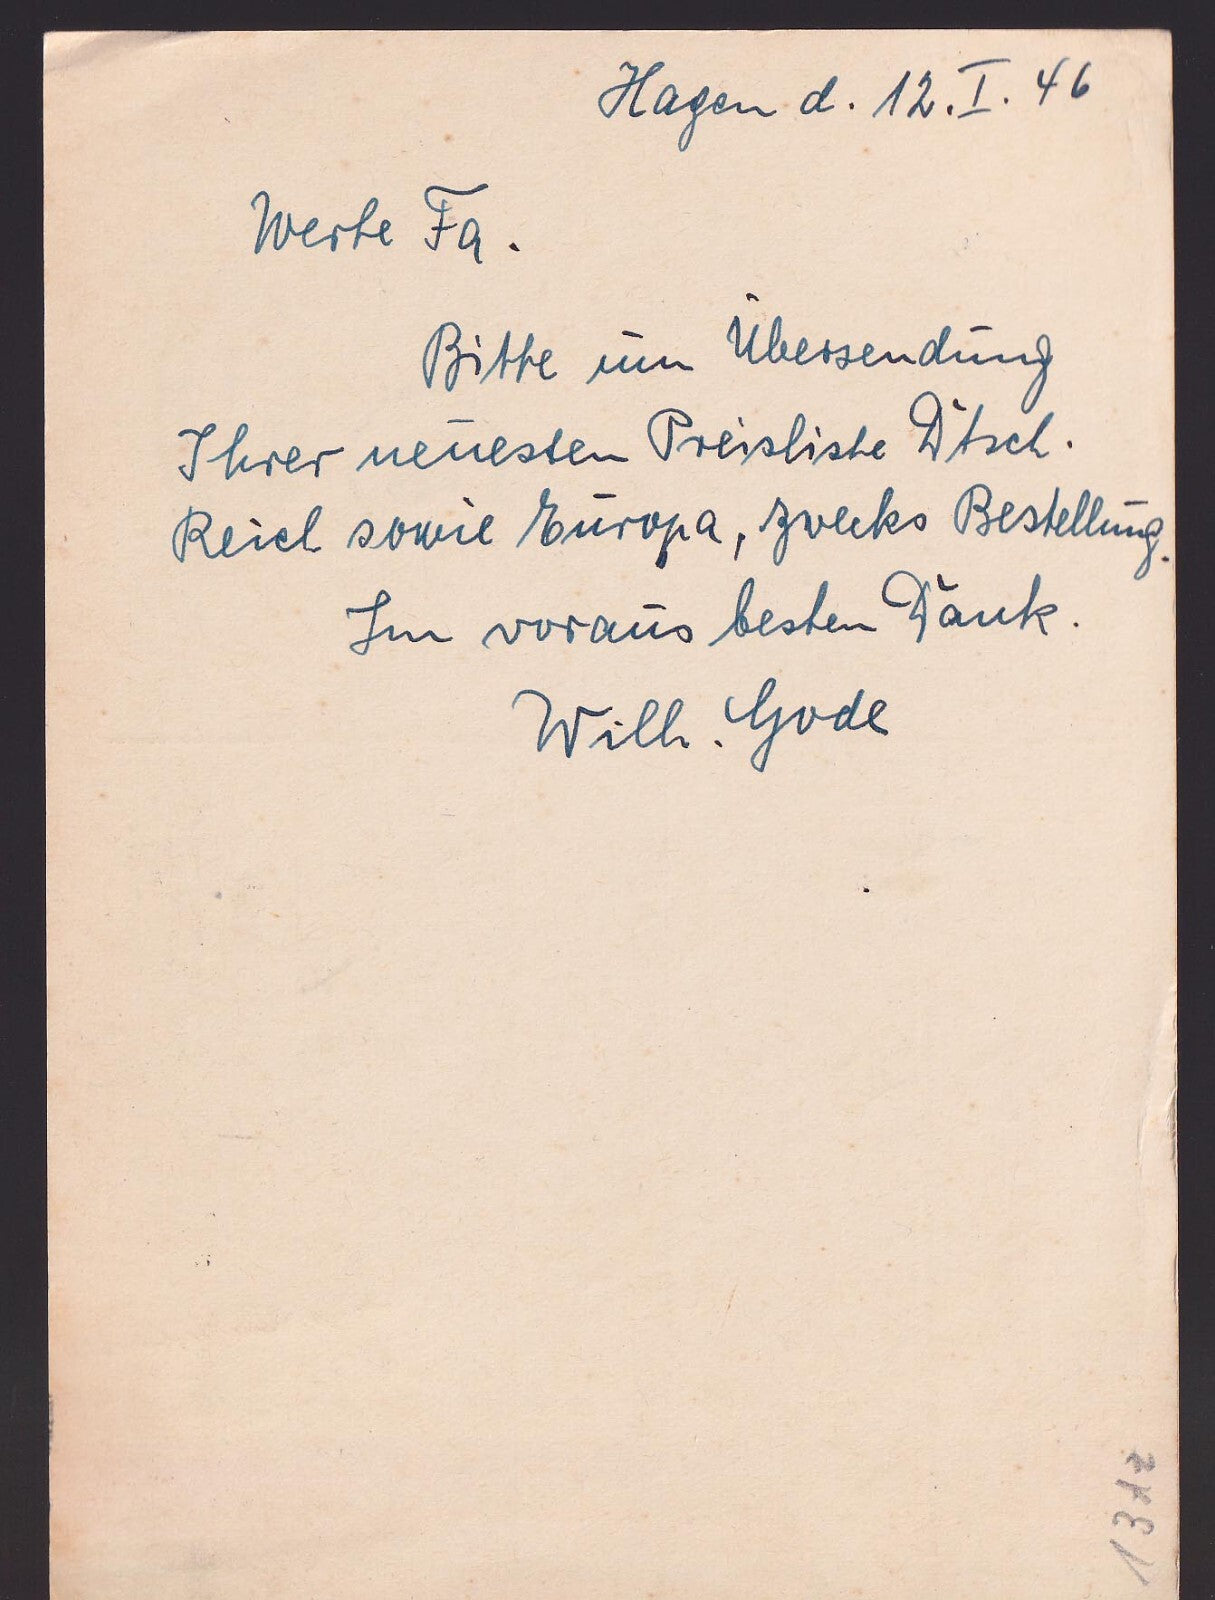 Hagen d. 12. I. 46
Werte Fa.
Bitte um Übersendung
Ihrer neuesten Preisliste Dtsch.
Reich sowie Europa, zwecks Bestellung.
Im voraus besten Dank.
Wilh. Gode